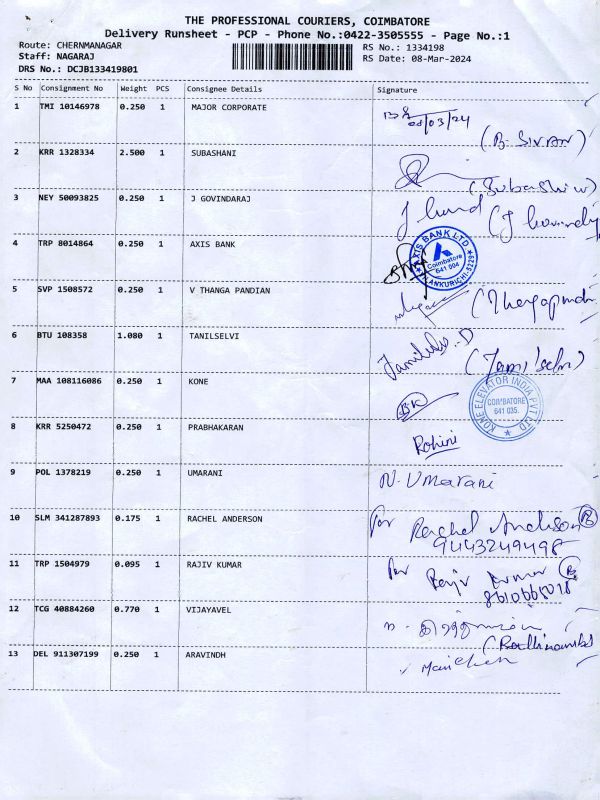 THE PROFESSIONAL COURIERS, COIMBATORE
Delivery Runsheet - PCP - Phone No.:0422-3505555 - Page No.:1
Route: CHERNMANAGAR RS No.: 1334198
Staff: NAGARAJ RS Date: 08-Mar-2024
DRS No.: DCJB133419801
S No Consignment No Weight PCS Consignee Details Signature
1 TMI 10146978 0.250 1 MAJOR CORPORATE
08/03/24
(B. SIVAN)
2 KRR 1328334 2.500 1 SUBASHANI
(Subashini)
3 NEY 50093825 0.250 1 J GOVINDARAJ
4 TRP 8014864 0.250 1 AXIS BANK
AXIS BANK LTD.
Coimbatore
641 004
5 SVP 1508572 0.250 1 V THANGA PANDIAN
6 BTU 108358 1.080 1 TANILSELVI
Tamilselvi. D
(Tamilselvi)
7 MAA 108116086 0.250 1 KONE
BK
KONE ELEVATOR INDIA PVT LTD
COIMBATORE
641 035.
8 KRR 5250472 0.250 1 PRABHAKARAN
Rohini
9 POL 1378219 0.250 1 UMARANI
N. Umarani
10 SLM 341287893 0.175 1 RACHEL ANDERSON
For Rachel Anderson
9443249498
11 TRP 1504979 0.095 1 RAJIV KUMAR
For Rajiv Kumar
12 TCG 40884260 0.770 1 VIJAYAVEL
13 DEL 911307199 0.250 1 ARAVINDH